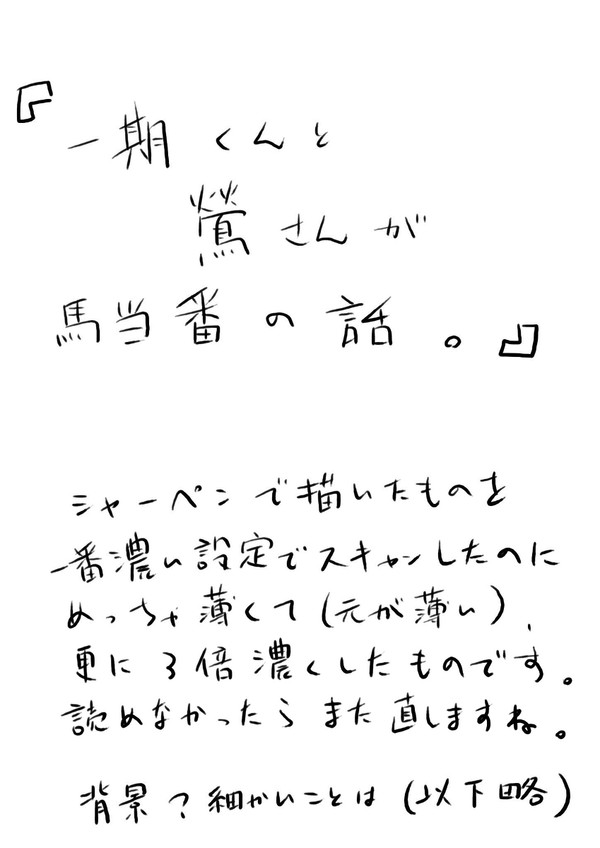 『一期くんと
鶯さんが
馬当番の話。』
シャーペンで描いたものを
一番濃い設定でスキャンしたのに
めっちゃ薄くて(元が薄い)、
更に3倍濃くしたものです。
読めなかったらまた直しますね。
背景?細かいことは(以下略)